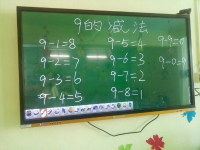 9的减法
9-1=8
9-2=7
9-3=6
9-4=5
9-5=4
9-6=3
9-7=2
9-8=1
9-9=0
9-0=9